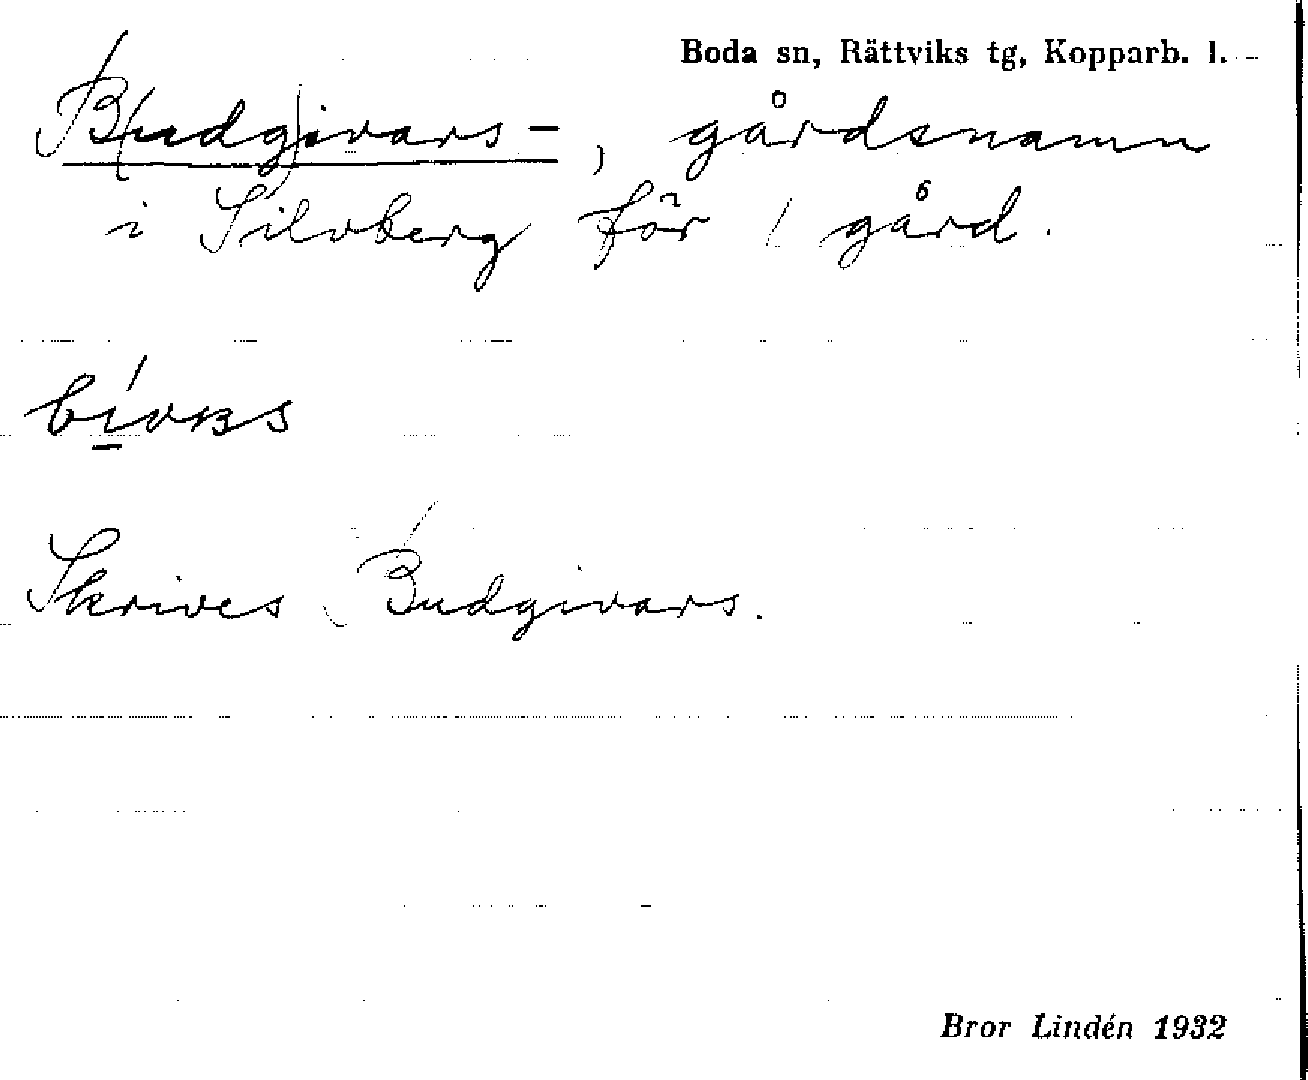 Boda sn, Rättviks tg, Kopparb. l.
B(udg)ivars-, gårdsnamn
i Silvberg för 1 gård.
Skrives Budgivars.
Bror Lindén 1932